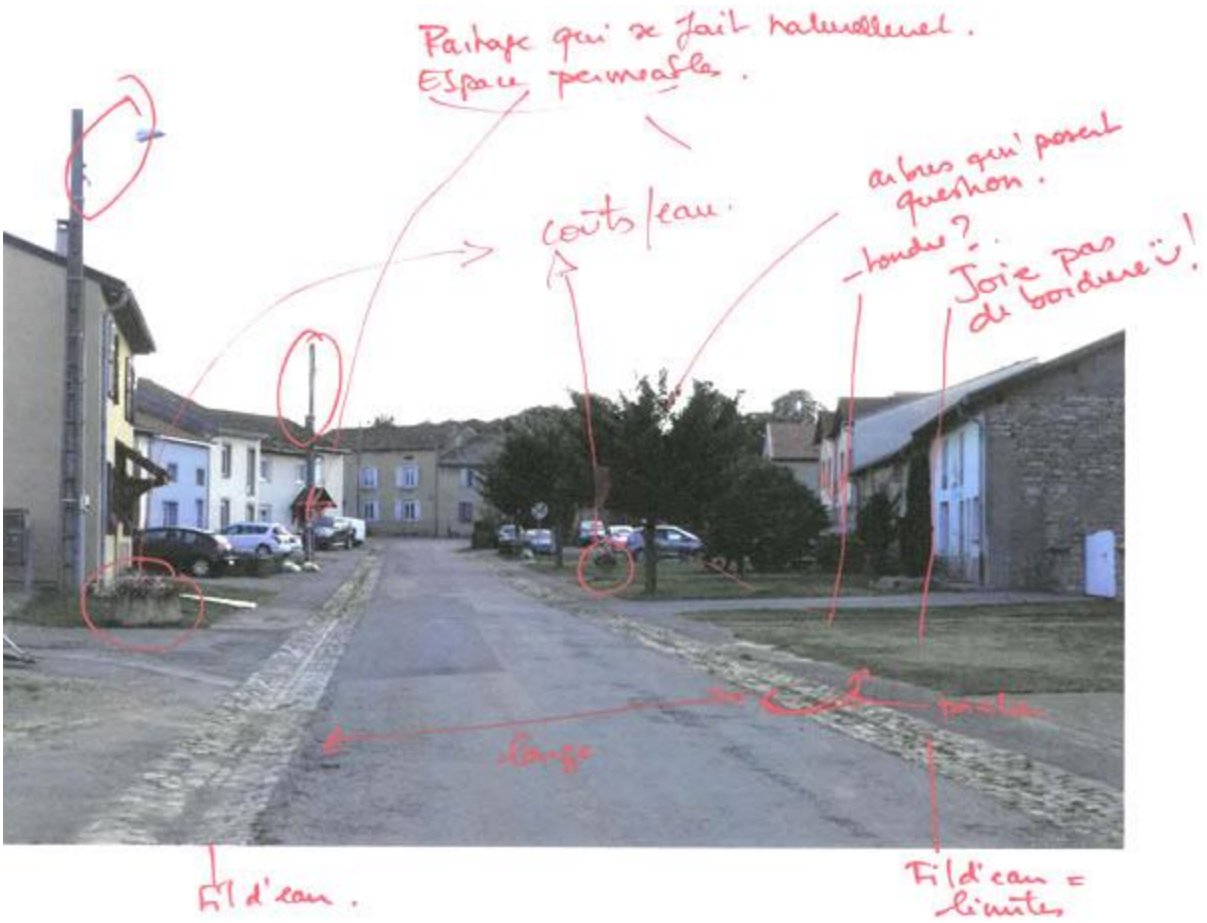 Partage qui se fait naturellement.
Espace perméables.
arbres qui posent
question.
coûts/eau.
tondre?
Joie pas
de bordure !
large
Fil d'eau.
Fil d'eau =
limites